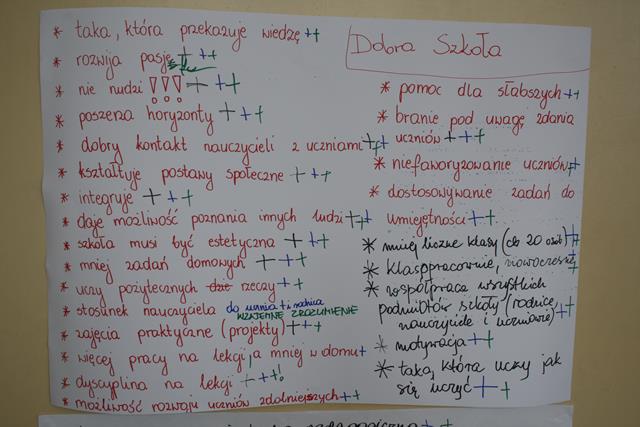 Dobra Szkoła
* taka, która przekazuje wiedzę ++
* rozwija pasje + ++
* nie nudzi !!! + ++
* poszerza horyzonty + ++
* dobry kontakt nauczycieli z uczniami +++
* kształtuje postawy społeczne + ++
* integruje + ++
* daje możliwość poznania innych ludzi +++
* szkoła musi być estetyczna + ++
* mniej zadań domowych + ++
* uczy pożytecznych rzeczy + ++
* stosunek nauczyciela do ucznia + i rodzica
WZAJEMNE ZROZUMIENIE
* zajęcia praktyczne (projekty) +++
* więcej pracy na lekcji, a mniej w domu +
* dyscyplina na lekcji + ++!
* możliwość rozwoju uczniów zdolniejszych ++
* pomoc dla słabszych ++
* branie pod uwagę zdania
uczniów + ++
* niefaworyzowanie uczniów ++
* dostosowywanie zadań do
umiejętności ++
* mniej liczne klasy (do 20 osób) ++
* klasopracownie, nowoczesne
* współpraca wszystkich
podmiotów szkoły (rodzice,
nauczyciele i uczniowie) ++
* motywacja ++
* taka, która uczy jak
się uczyć ++